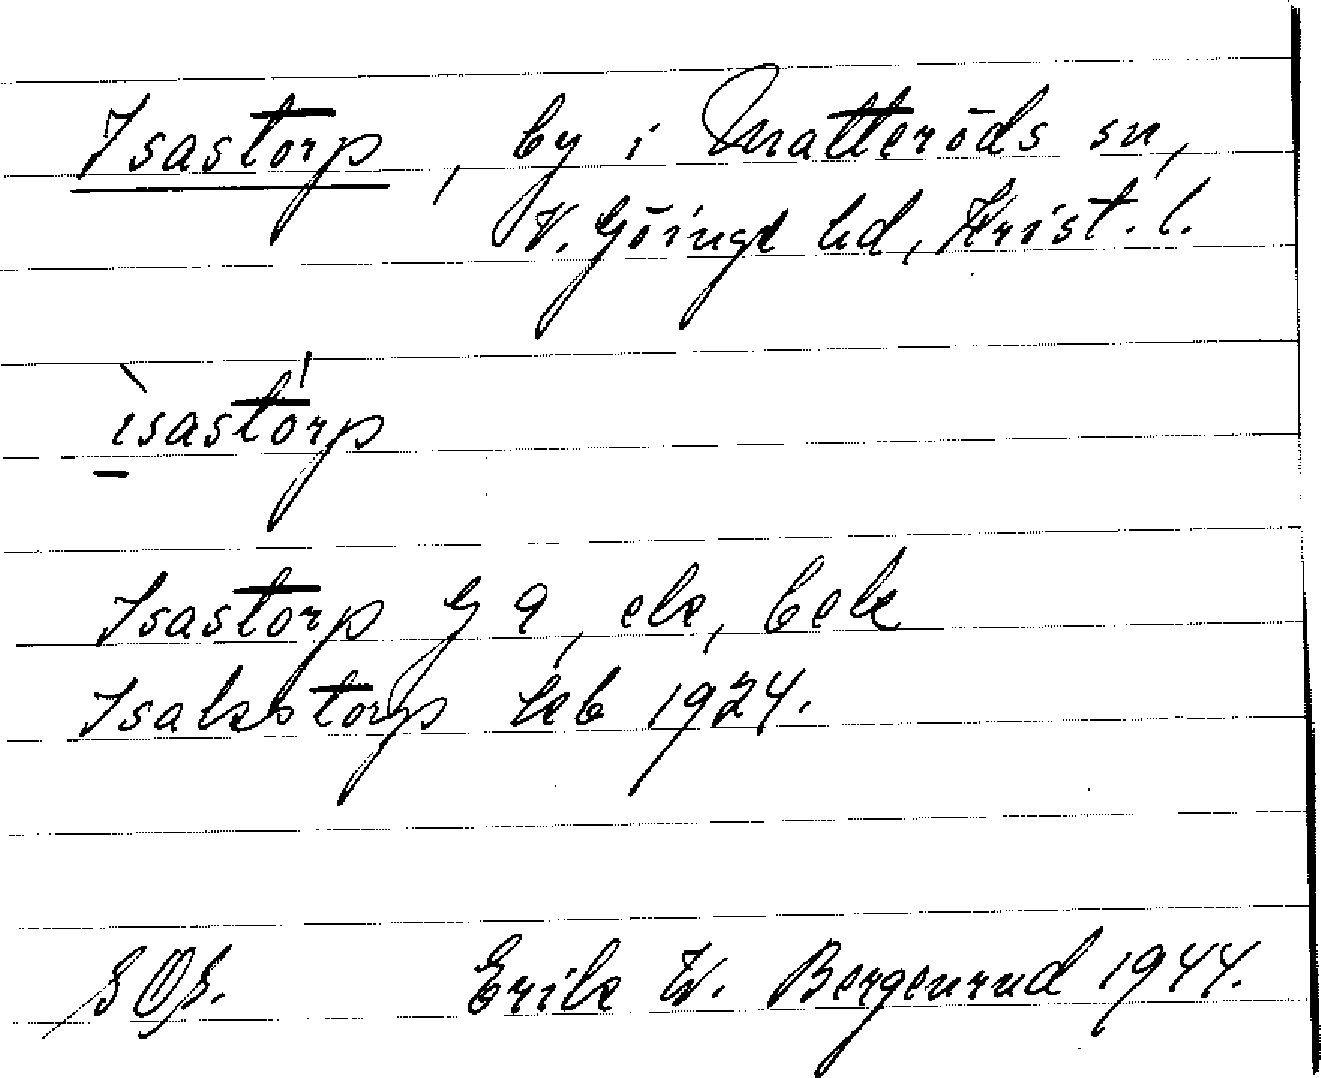 Isastorp, by i Matteröds sn,
V. Göinge hd, Krist. l.
ìsastórp
Isastorp G 9, ek, bek
Isakstorp kb 1924.
SOS. Erik W. Bergenrud 1944.